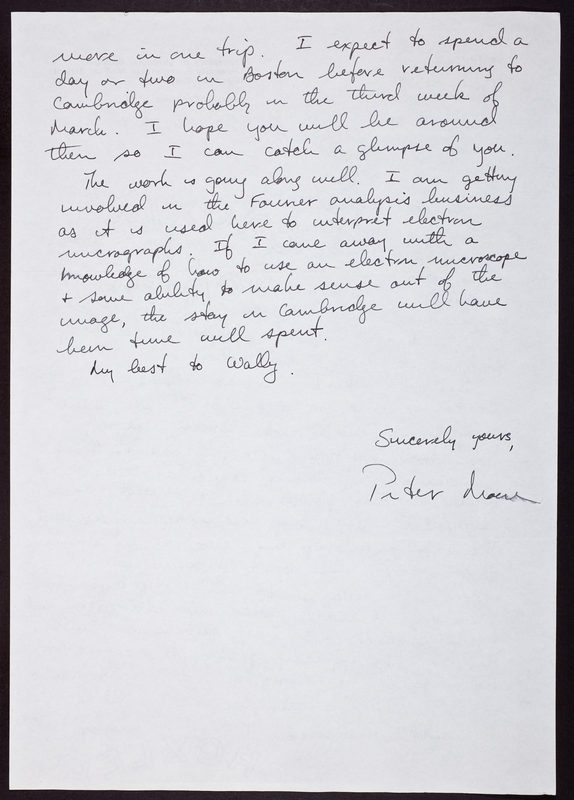 more in one trip. I expect to spend a
day or two in Boston before returning to
Cambridge probably in the third week of
March. I hope you will be around
then so I can catch a glimpse of you.
The work is going along well. I am getting
involved in the Fourier analysis business
as it is used here to interpret electron
micrographs. If I come away with a
knowledge of how to use an electron microscope
+ some ability to make sense out of the
image, the stay in Cambridge will have
been time well spent.
My best to Wally.
Sincerely yours,
Peter Moore